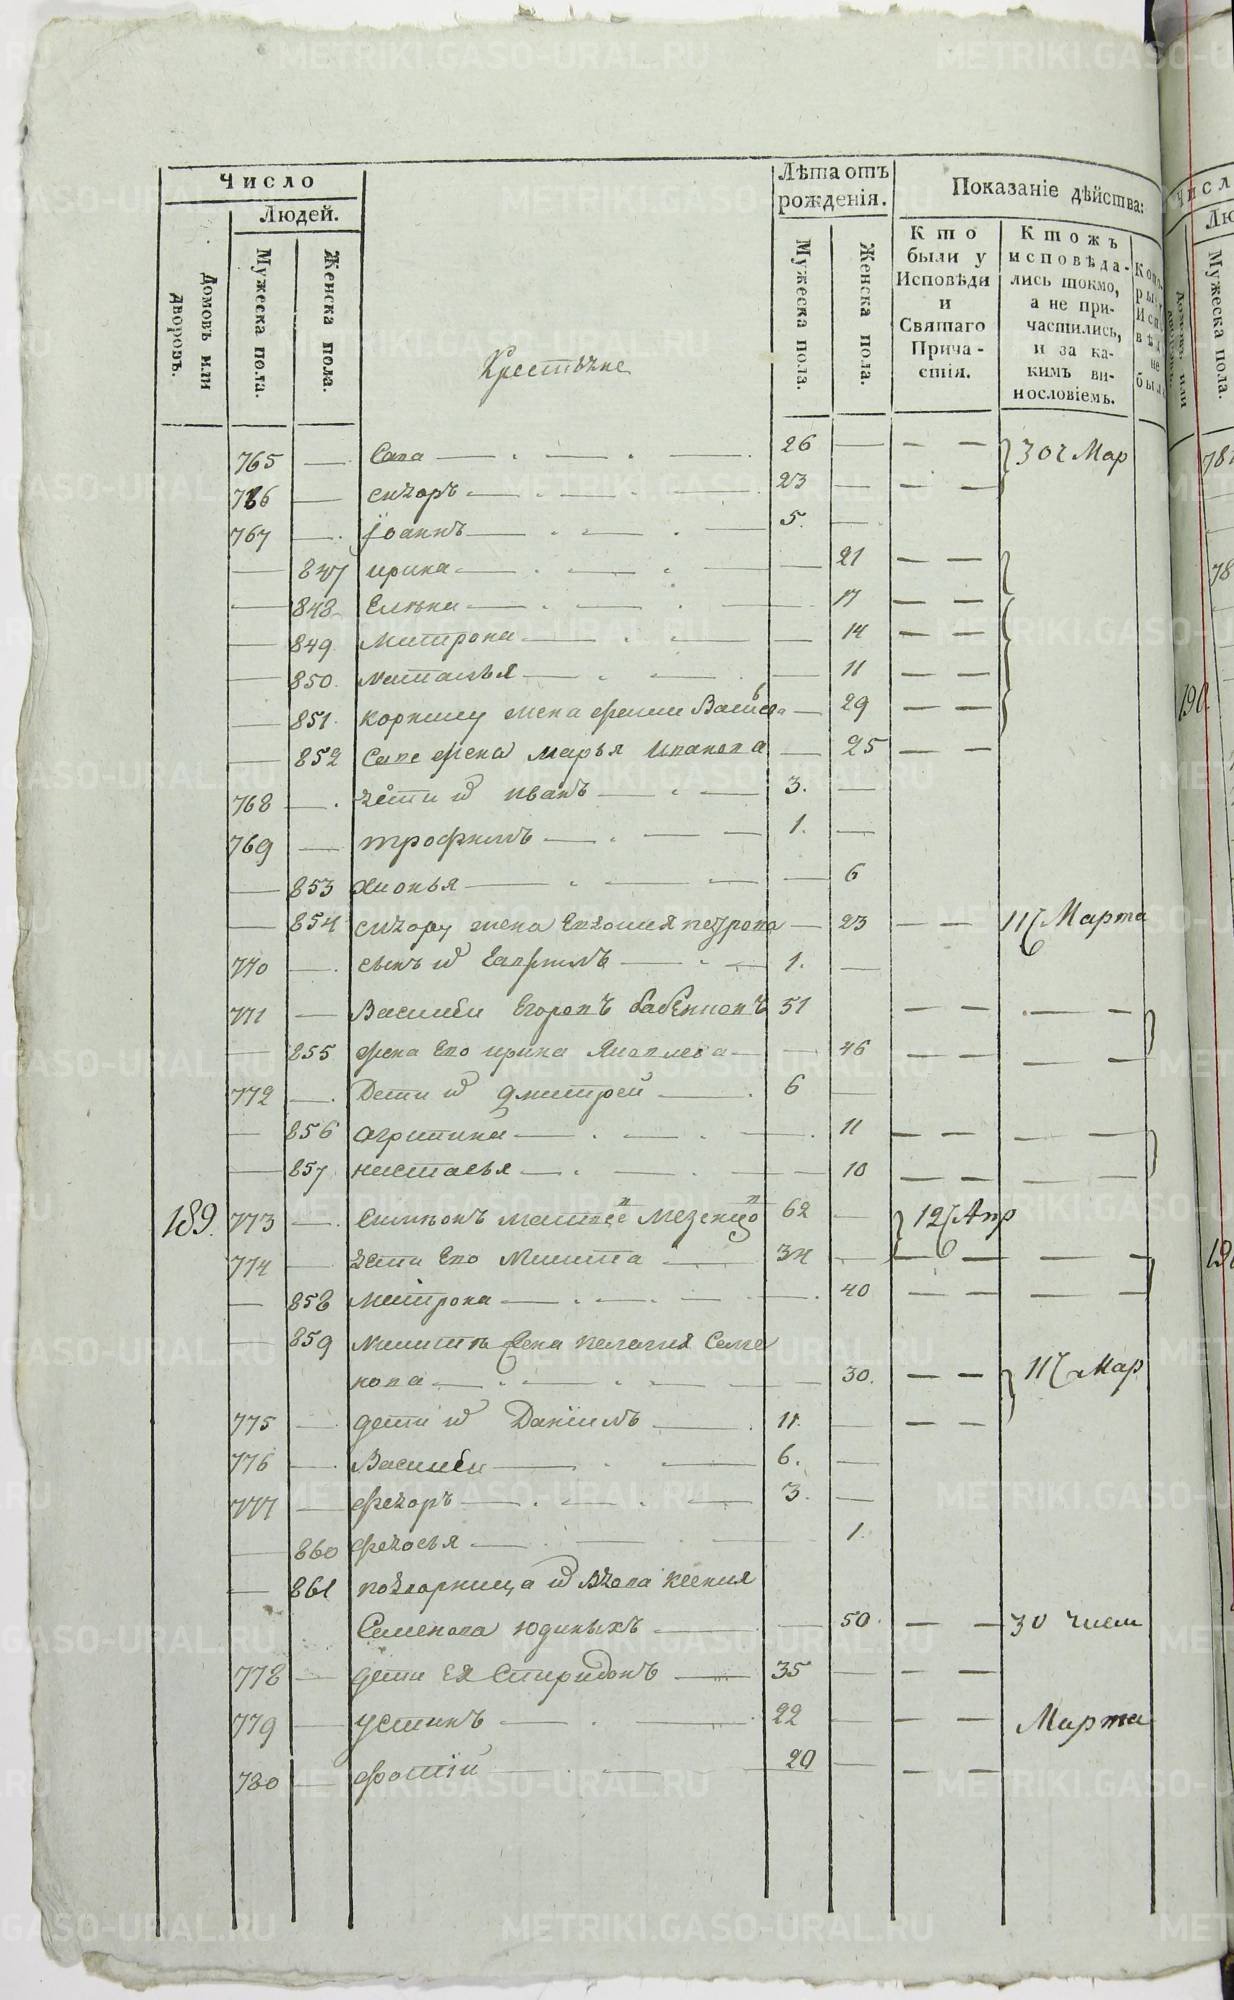 Число
Людей.
Домовъ или дворовъ.
Мужеска пола.
Женска пола.
Крестьяне
Лѣта отъ рожденія.
Мужеска пола.
Женска пола.
Показаніе дѣйства:
Кто были у Исповѣди и Святаго Причастія.
Ктожъ исповѣдались токмо, а не причастились, и за какимъ винословіемъ.
765 — Сава — 26 — — — 30 ч Мар
766 — сидоръ — 23 — — —
767 — Іоаннъ — 5. —
— 847 ирина — 21 — —
— 848 Елена — 17 — —
— 849 матрона — 14 — —
— 850 наталья — 11 — —
— 851 жена Васил — 29 — —
— 852 Саве жена марья иванова — 25 — —
768 — дети ꙍ иванъ — 3. —
769 — трофимъ — 1. —
— 853 хионья — 6
— 854 сидору жена Евдокия петрова — 23 — — 11 Марта
770 — сынъ ꙍ Гаврилъ — 1. —
771 — Василеи Егоровъ 51 — — — —
— 855 жена Его ирина Яковлева — 46 — — — —
772 — Дети ꙍ Дмитреи — 6 —
— 856 агрипина — 11 — — — —
— 857 настасья — 10 — — — —
189. 773 — симеонъ матвеев Мезенцов 62 — 12 Апр
774 — дети Его Никита — 34 — — — — —
— 858 матрона — 40 — — — —
— 859 Никитѣ жена пелагия Семе
нова — 30. — — 11 Мар
775 — дети ꙍ Даніилъ — 11. — — —
776 — Василеи — 6. —
777 — федоръ — 3. —
— 860 федосья — 1.
— 861 подворница ꙍ вдова ксения
Семенова юдиныхъ — 50 — — 30 числ
778 — дети Ея Спиридонъ — 35 — — —
779 — устинъ — 22 — — — Марта
780 — фотій — 20 — — —